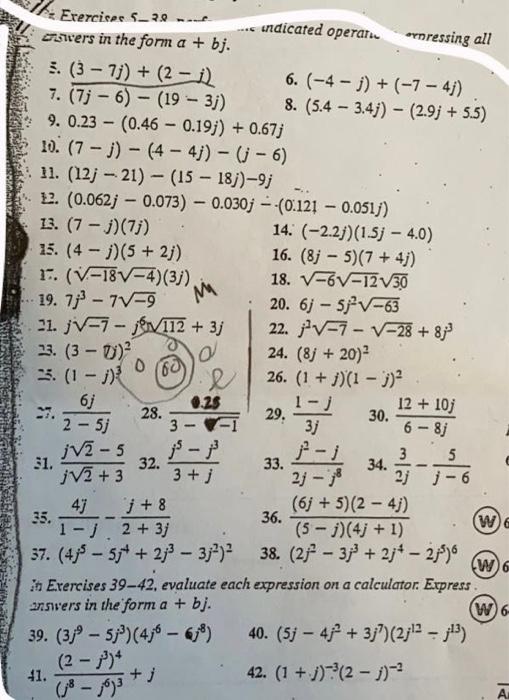 Exercises 5–38
indicated expressing all
answers in the form a + bj.
5. (3 − 7j) + (2 − j) 6. (−4 − j) + (−7 − 4j)
7. (7j − 6) − (19 − 3j) 8. (5.4 − 3.4j) − (2.9j + 5.5)
9. 0.23 − (0.46 − 0.19j) + 0.67j
10. (7 − j) − (4 − 4j) − (j − 6)
11. (12j − 21) − (15 − 18j)−9j
12. (0.062j − 0.073) − 0.030j − (0.121 − 0.051j)
13. (7 − j)(7j) 14. (−2.2j)(1.5j − 4.0)
15. (4 − j)(5 + 2j) 16. (8j − 5)(7 + 4j)
17. (√−18√−4)(3j) 18. √−6√−12√30
19. 7j³ − 7√−9 20. 6j − 5j²√−63
21. j√−7 − j⁶√112 + 3j 22. j²√−7 − √−28 + 8j³
23. (3 − 7j)² 24. (8j + 20)²
25. (1 − j)³ 60 26. (1 + j)(1 − j)²
27. 6j/(2 − 5j) 28. 0.25/(3 − √−1) 29. (1 − j)/3j 30. (12 + 10j)/(6 − 8j)
31. (j√2 − 5)/(j√2 + 3) 32. (j⁵ − j³)/(3 + j) 33. (j² − j)/(2j − j⁸) 34. 3/2j − 5/(j − 6)
35. 4j/(1 − j) − (j + 8)/(2 + 3j) 36. (6j + 5)(2 − 4j)/(5 − j)(4j + 1) W 6
37. (4j⁵ − 5j⁴ + 2j³ − 3j²)² 38. (2j² − 3j³ + 2j⁴ − 2j⁵)⁶ W 6
In Exercises 39–42, evaluate each expression on a calculator. Express
answers in the form a + bj. W 6
39. (3j⁹ − 5j³)(4j⁶ − 6j⁸) 40. (5j − 4j² + 3j⁷)(2j¹² − j¹³)
41. (2 − j³)⁴/(j⁸ − j⁶)³ + j 42. (1 + j)⁻³(2 − j)⁻²